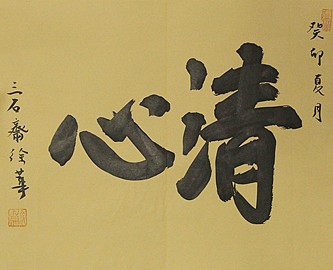 癸卯夏月
清心
三石齋徐華